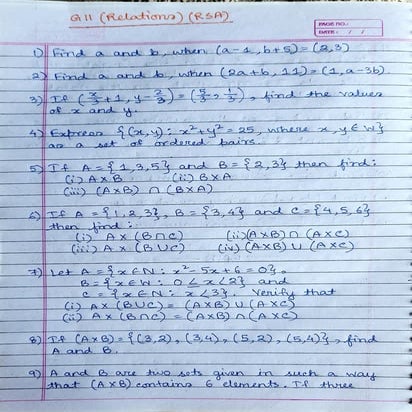 G11 (Relations) (RSA)
PAGE NO.:
DATE: / /
1) Find a and b, when (a-1, b+5) = (2,3)
2) Find a and b, when (2a+b, 11) = (1, a-3b).
3) If (x/3+1, y-2/3) = (5/3, 1/3), find the values
of x and y.
4) Express {(x,y): x²+y²=25, where x, y ∈ W}
as a set of ordered pairs.
5) If A = {1,3,5} and B = {2,3} then find:
(i) A×B (ii) B×A
(iii) (A×B) ∩ (B×A)
6) If A = {1,2,3}, B = {3,4} and C = {4,5,6}
then find:
(i) A × (B∩C) (ii) (A×B) ∩ (A×C)
(iii) A × (B∪C) (iv) (A×B) ∪ (A×C)
7) Let A = {x∈N: x²-5x+6=0},
B = {x∈W: 0≤x<2} and
C = {x∈N: x<3}. Verify that
(i) A × (B∪C) = (A×B) ∪ (A×C)
(ii) A × (B∩C) = (A×B) ∩ (A×C)
8) If (A×B) = {(3,2), (3,4), (5,2), (5,4)}, find
A and B.
9) A and B are two sets given in such a way
that (A×B) contains 6 elements. If three